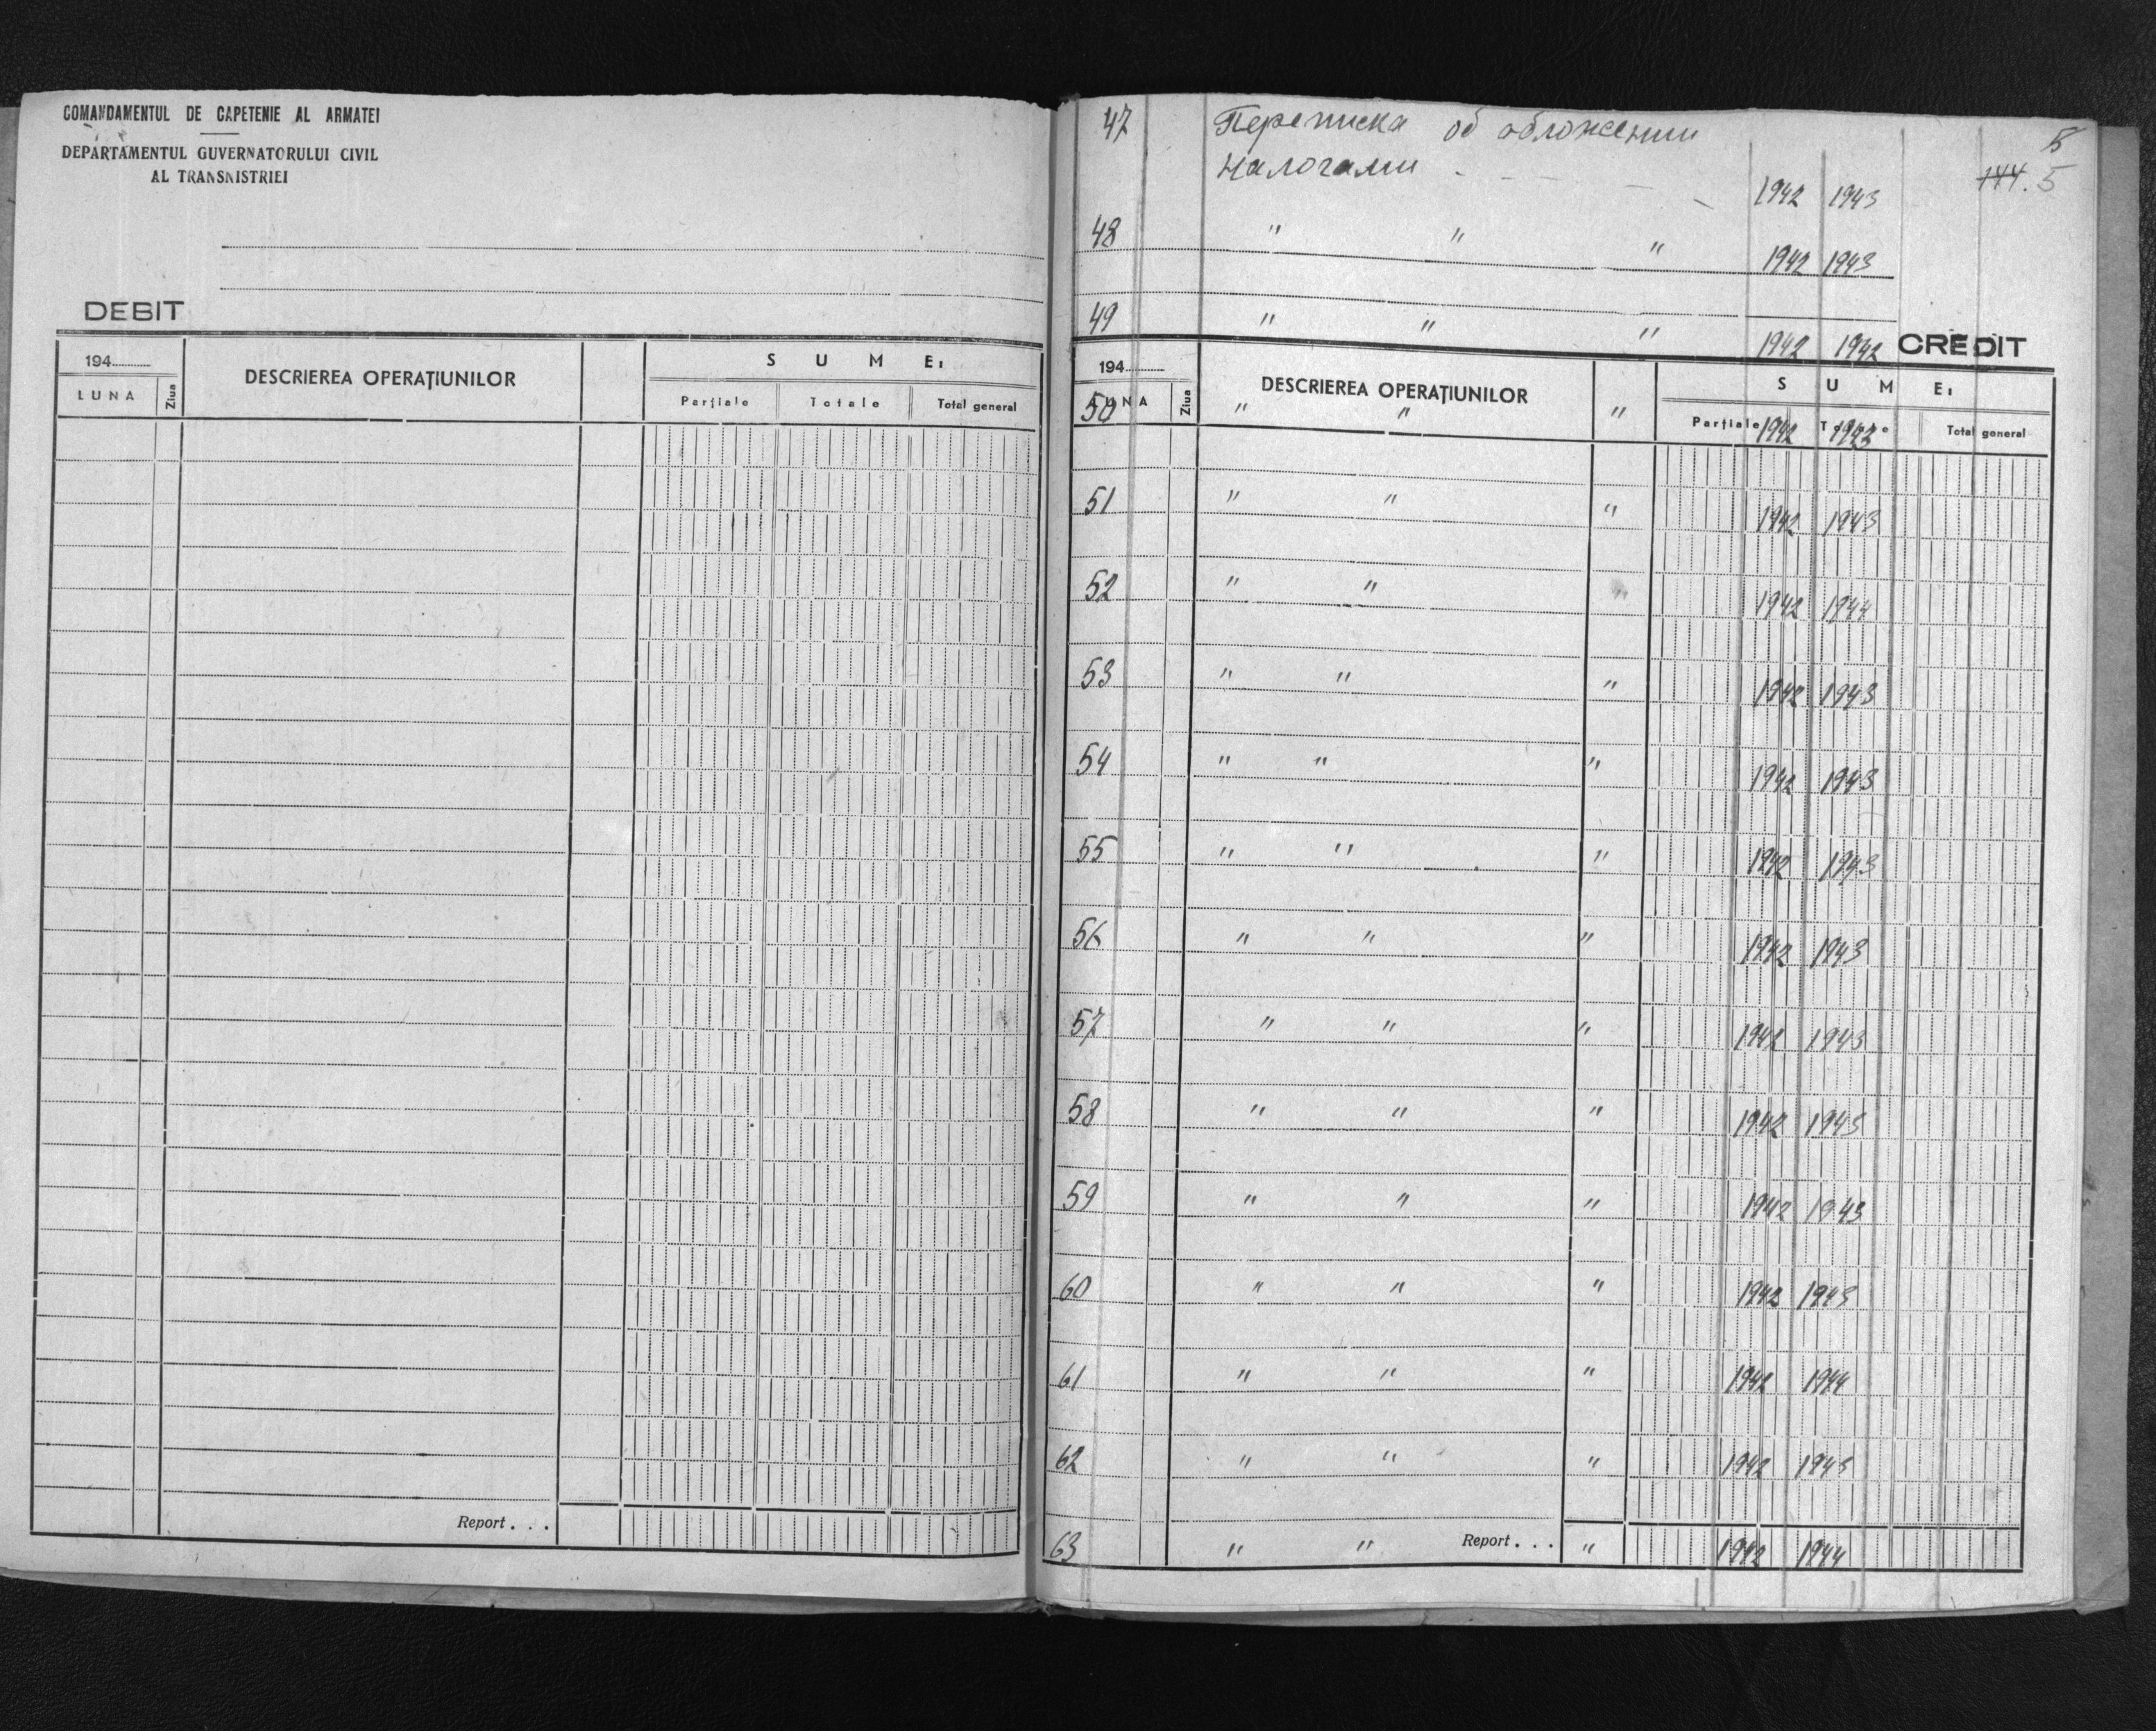 COMANDAMENTUL DE CAPETENIE AL ARMATEI
DEPARTAMENTUL GUVERNATORULUI CIVIL
AL TRANSNISTRIEI
DEBIT
194
LUNA Ziua DESCRIEREA OPERAȚIUNILOR SUME:
Parțiale Totale Total general
Report . . .
47 Переписка об обложении
налогами - - - - 1942 1943
5
144. 5
48 " " " 1942 1943
49 " " " 1942 1942
CREDIT
194
LUNA Ziua DESCRIEREA OPERAȚIUNILOR SUME:
Parțiale Total general
50 " " " 1942 1942
51 " " " 1942 1943
52 " " " 1942 1944
53 " " " 1942 1943
54 " " " 1942 1943
55 " " " 1942 1943
56 " " " 1942 1943
57 " " " 1942 1943
58 " " " 1942 1943
59 " " " 1942 1943
60 " " " 1942 1943
61 " " " 1942 1944
62 " " " 1942 1943
63 " " Report . . . " 1942 1944